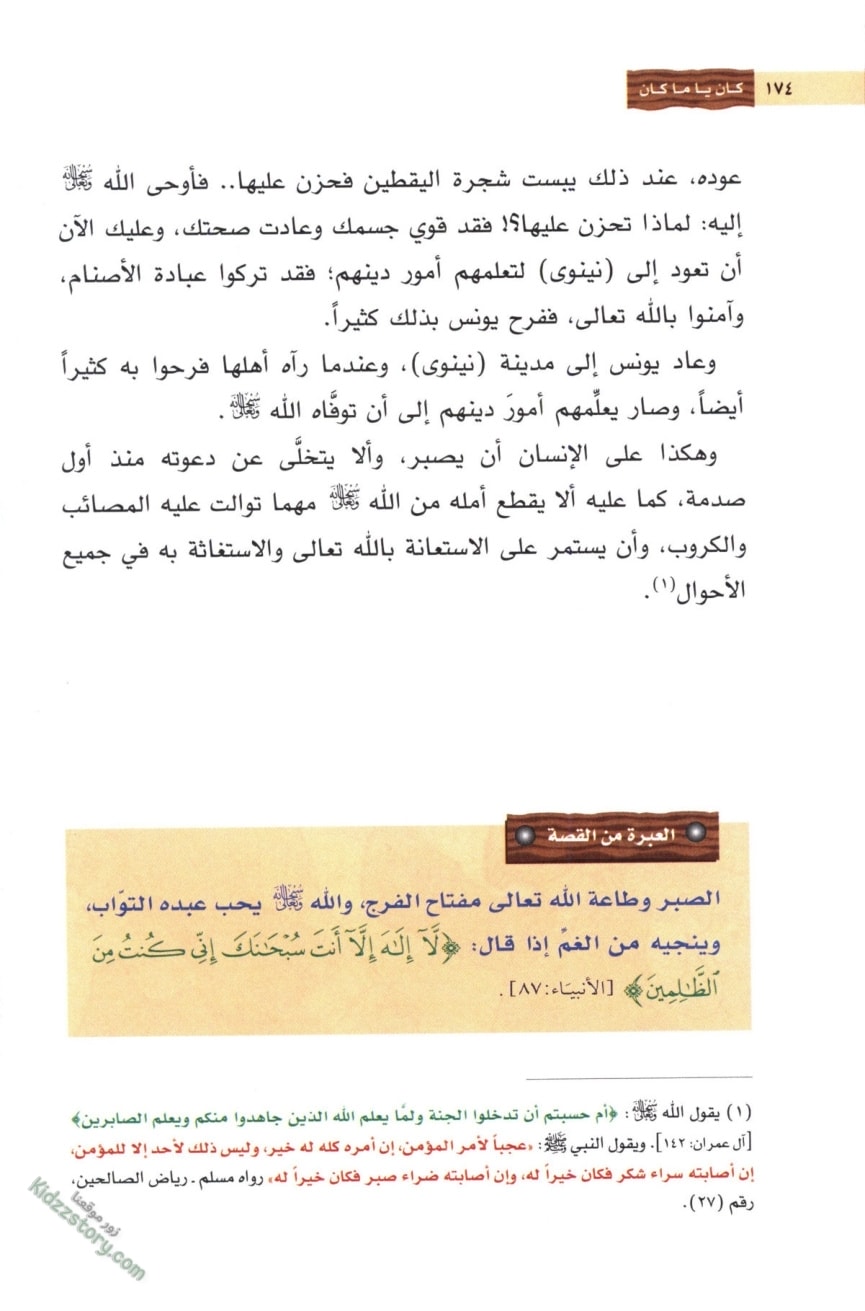 ١٧٤
كان يا ما كان
عوده، عند ذلك يبست شجرة اليقطين فحزن عليها.. فأوحى الله ﷾
إليه: لماذا تحزن عليها؟! فقد قوي جسمك وعادت صحتك، وعليك الآن
أن تعود إلى (نينوى) لتعلمهم أمور دينهم؛ فقد تركوا عبادة الأصنام،
وآمنوا بالله تعالى، ففرح يونس بذلك كثيراً.
وعاد يونس إلى مدينة (نينوى)، وعندما رآه أهلها فرحوا به كثيراً
أيضاً، وصار يعلِّمهم أمورَ دينهم إلى أن توفَّاه الله ﷾.
وهكذا على الإنسان أن يصبر، وألا يتخلَّى عن دعوته منذ أول
صدمة، كما عليه ألا يقطع أمله من الله ﷾ مهما توالت عليه المصائب
والكروب، وأن يستمر على الاستعانة بالله تعالى والاستغاثة به في جميع
الأحوال(١).
العبرة من القصة
الصبر وطاعة الله تعالى مفتاح الفرج، والله ﷾ يحب عبده التوّاب،
وينجيه من الغمِّ إذا قال: ﴿لَّآ إِلَٰهَ إِلَّآ أَنتَ سُبْحَٰنَكَ إِنِّى كُنتُ مِنَ
ٱلظَّٰلِمِينَ﴾ [الأنبيَاء: ٨٧].
(١) يقول الله ﷾: ﴿أم حسبتم أن تدخلوا الجنة ولمَّا يعلم الله الذين جاهدوا منكم ويعلم الصابرين﴾
[آل عمران: ١٤٢]. ويقول النبي ﷺ: «عجباً لأمر المؤمن، إن أمره كله له خير، وليس ذلك لأحد إلا للمؤمن،
إن أصابته سراء شكر فكان خيراً له، وإن أصابته ضراء صبر فكان خيراً له» رواه مسلم ـ رياض الصالحين،
رقم (٢٧).
زور موقعنا
Kidzzstory.com